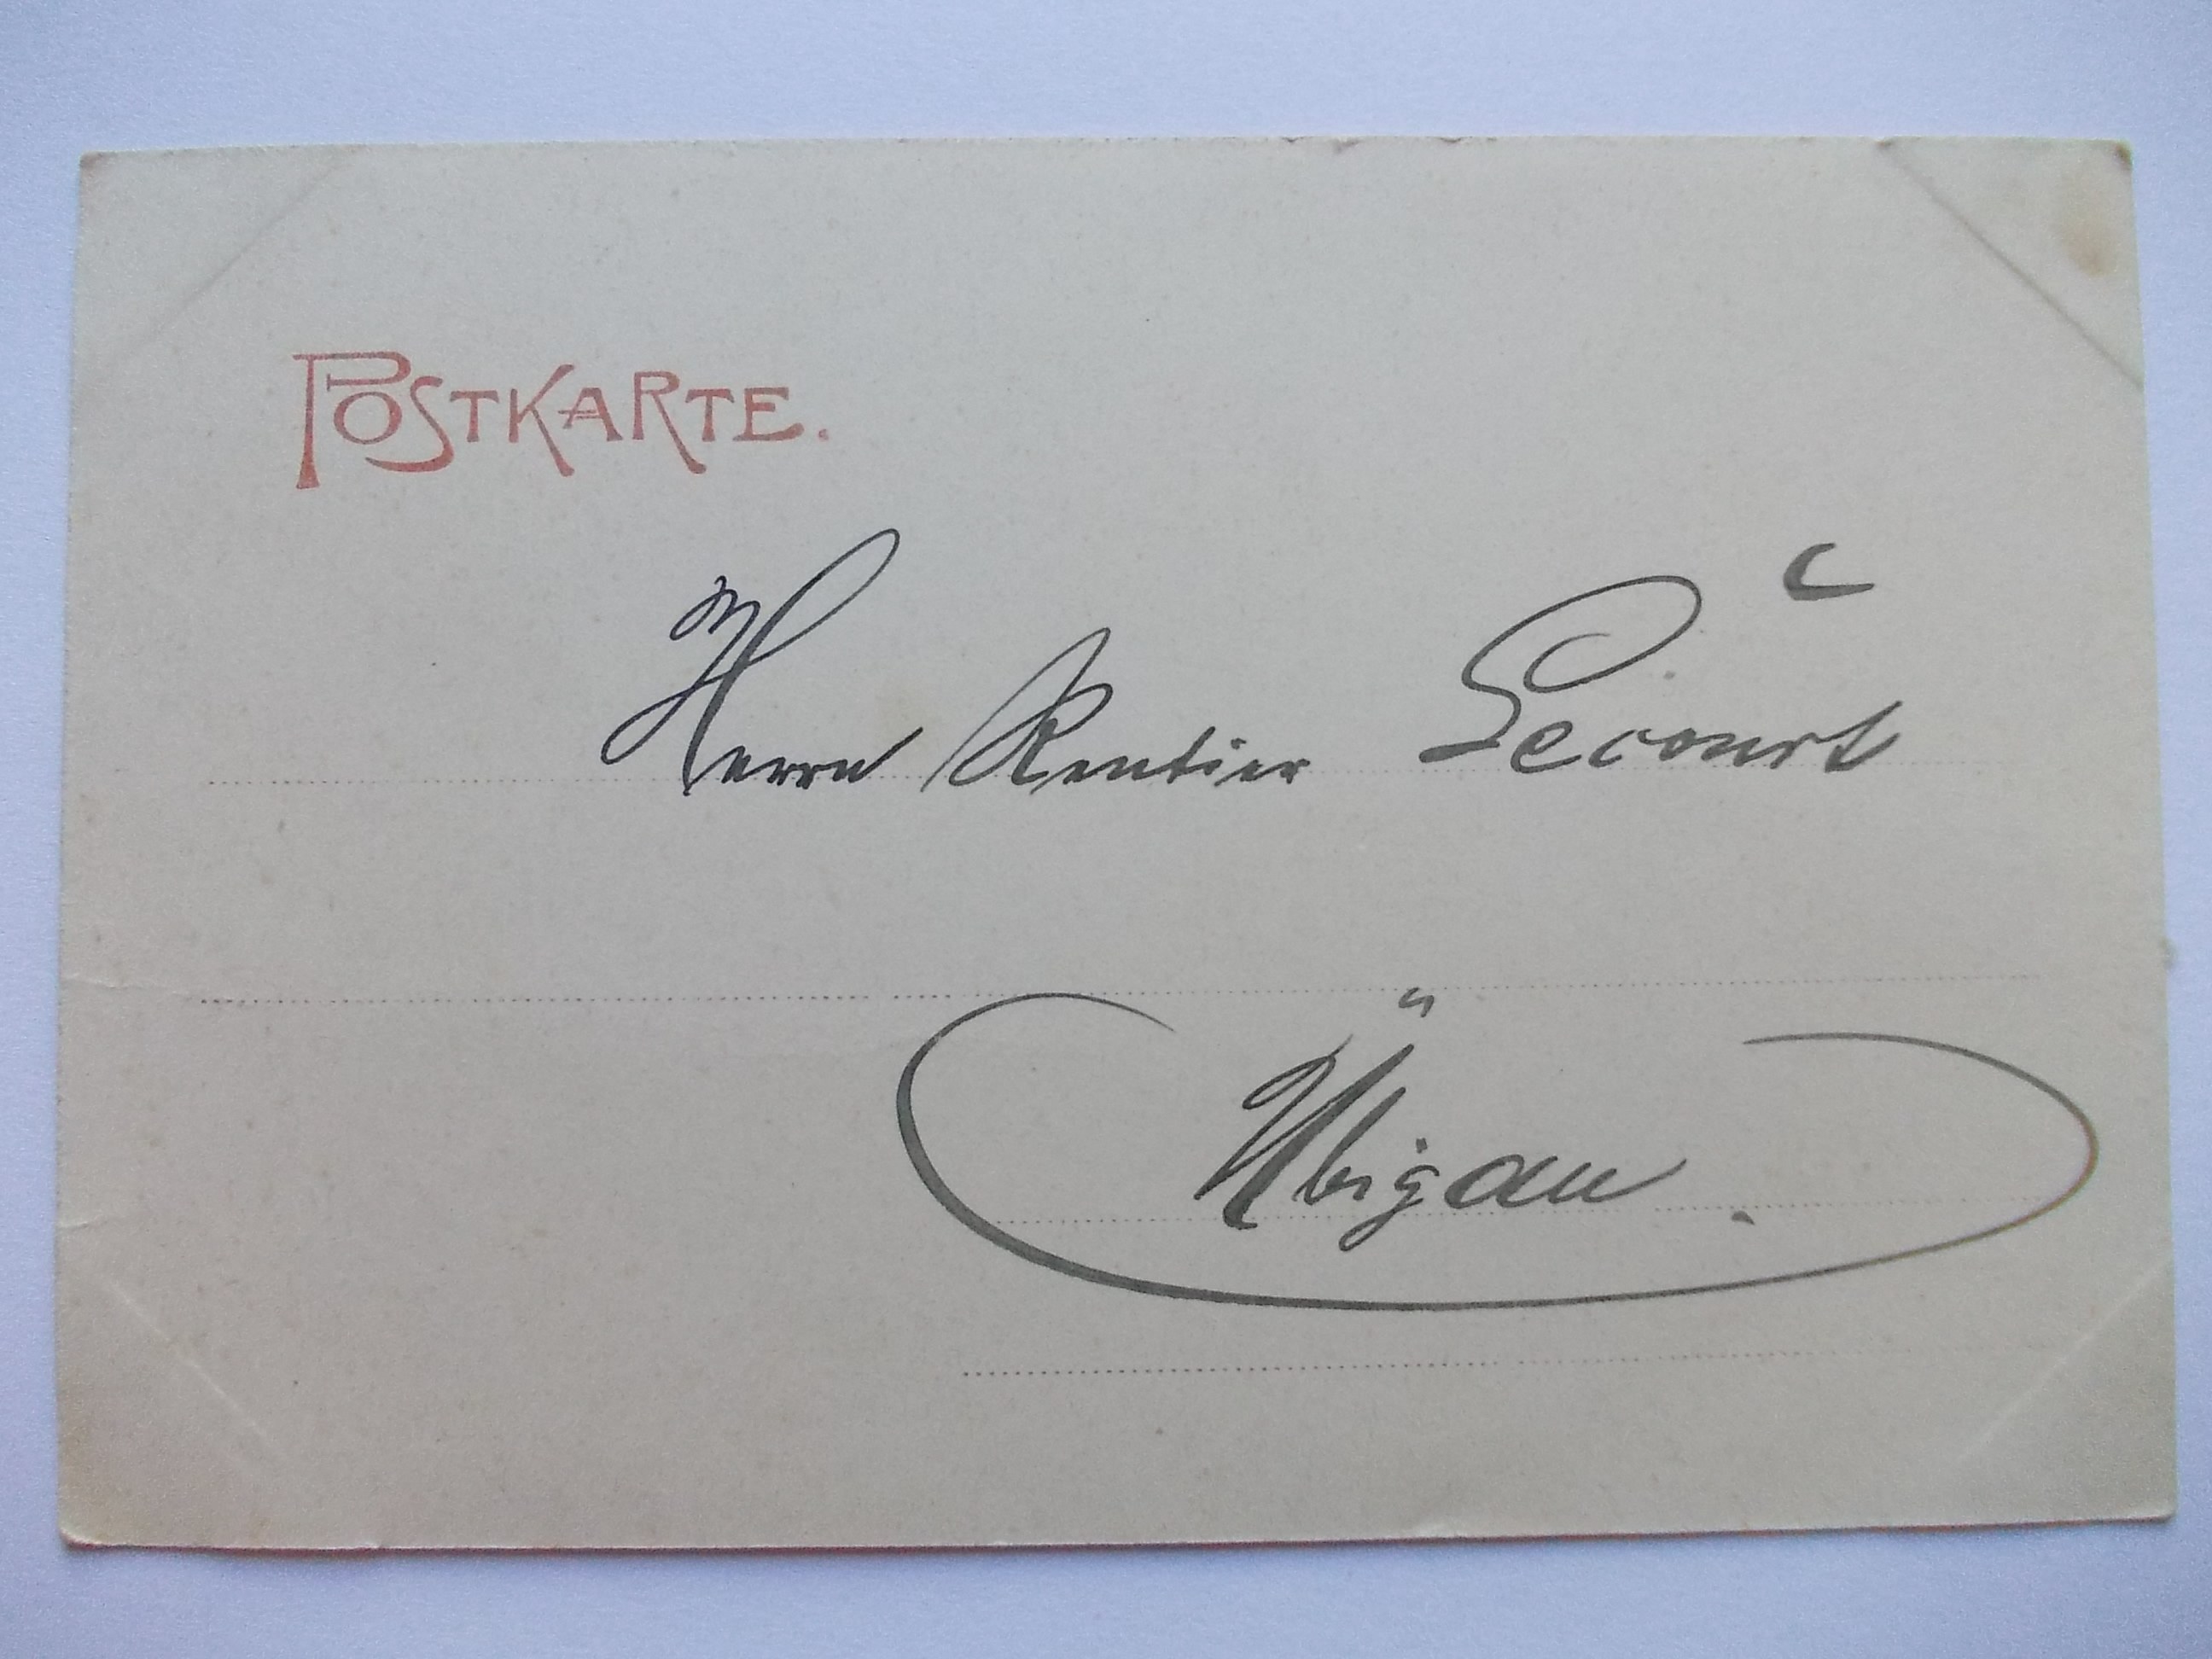 POSTKARTE.
Herrn Rentier Lecourt
Übigau.